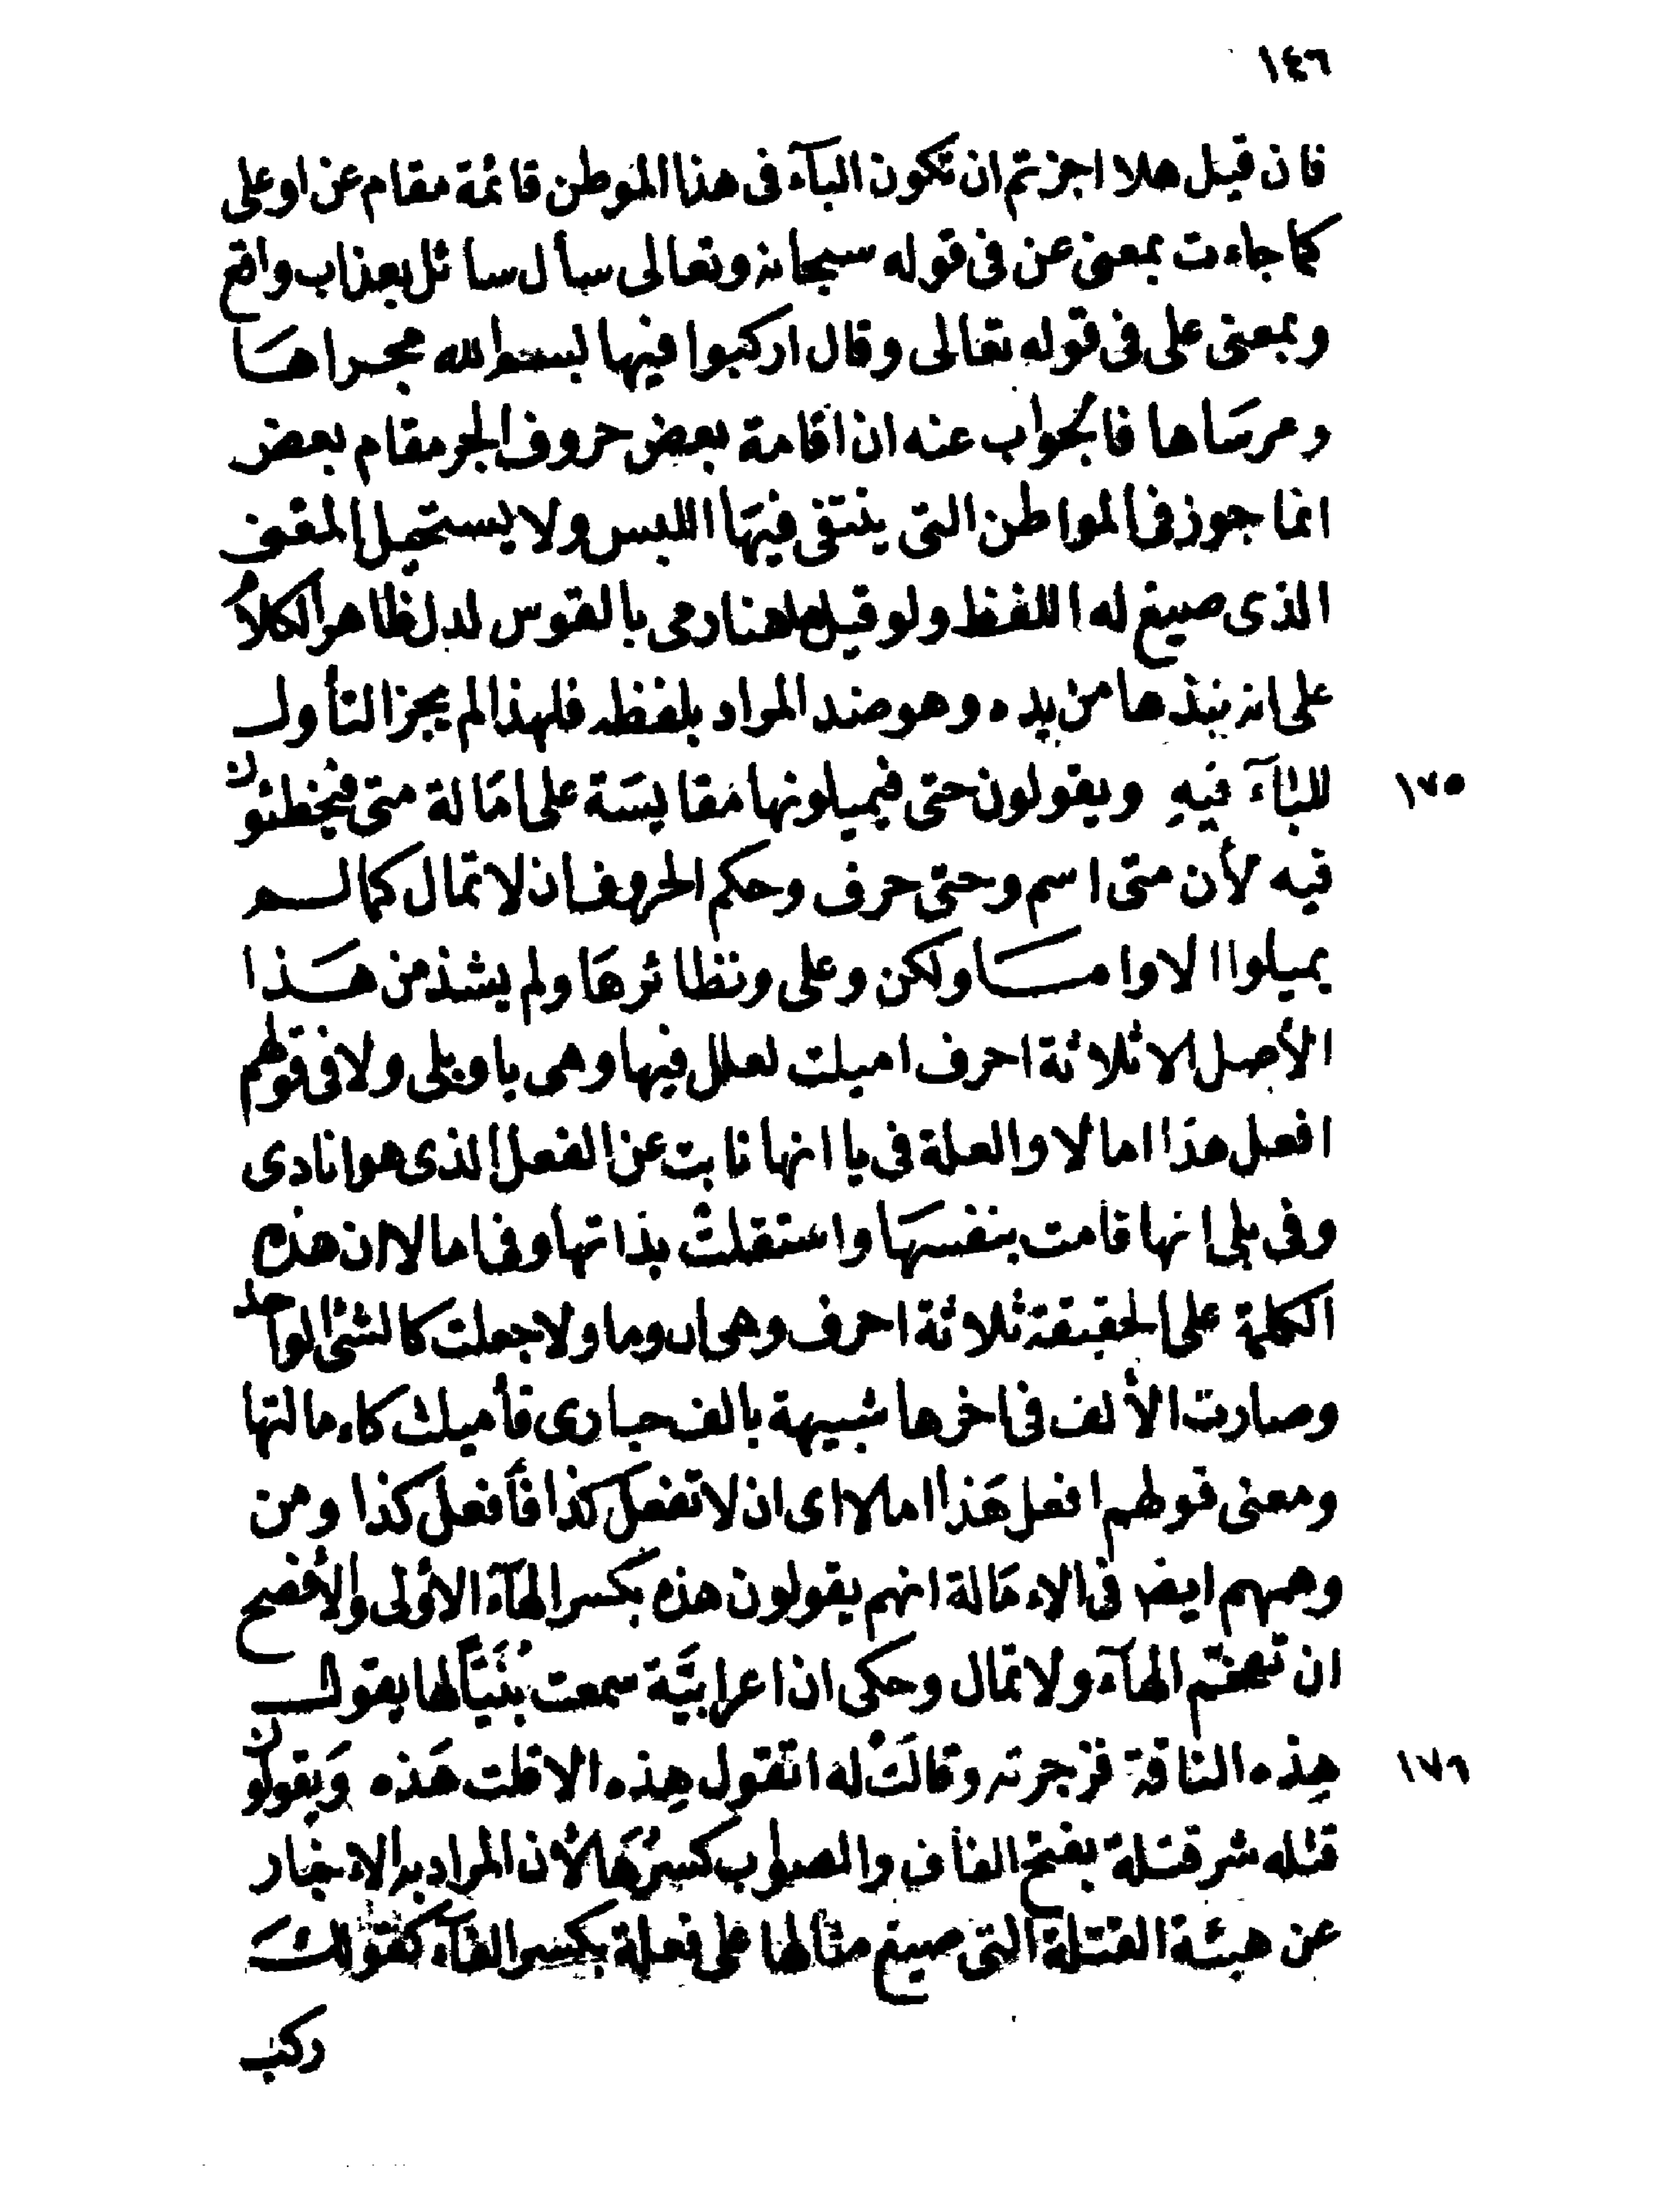 ١٤٦
فان قيل هلا اجزتم ان تكون البآء فى هذا الموطن قائمة مقام عن او على
كما جاءت بمعنى عن فى قوله سبحانه وتعالى سأل سائل بعذاب واقع
وبمعنى على فى قوله تعالى وقال اركبوا فيها بسم الله مجراها
ومرساها فالجواب عنه ان اقامة بعض حروف الجر مقام بعض
انما جوز فى المواطن التى ينتفى فيها اللبس ولا يستحيل المعنى
الذى صيغ له اللفظ ولو قيل هاهنا رمى بالقوس لدل ظاهر الكلام
على انه نبذها من يده وهو ضد المراد بلفظه فلهذا لم يجز التأول
١٧٥ للبآء فيه ويقولون حتى فيميلونها مقايسة على امالة متى فيخطئون
فيه لأن متى اسم وحتى حرف وحكم الحروف ان لا تمال كما لم
يميلوا الا واما ولكن وعلى ونظائرها ولم يشذ من هذا
الأصل الا ثلاثة احرف اميلت لعلل فيها وهى يا وبلى ولا فى قولهم
افعل هذا اما لا والعلة فى يا انها نابت عن الفعل الذى هو انادى
وفى بلى انها قامت بنفسها واستقلت بذاتها وفى اما لا ان هذه
الكلمة على الحقيقة ثلاثة احرف وهى ان وما ولا جعلت كالشئ الواحد
وصارت الألف فى اخرها شبيهة بالف حبارى فأميلت كاءمالتها
ومعنى قولهم افعل هذا امالا اى ان لا تفعل كذا فأفعل كذا ومن
وهمهم ايضا فى الاءمالة انهم يقولون هذه بكسر الهآء الأولى والأفصح
ان تفخم الهآء ولا تمال وحكى ان اعرابيّة سمعت بُنَيّاً لها يقول
١٧٦ هِذه الناقة فزجرته وقالَتْ له اتقول هِذه الا قلت هَذه وَيقولون
قتله شر قتلة بفتح القاف والصواب كسرُهَا لأن المراد به الاخبار
عن هيئة القتلة التى صيغ مثالها على فعلة بكسر الفآء كقولك
ركب